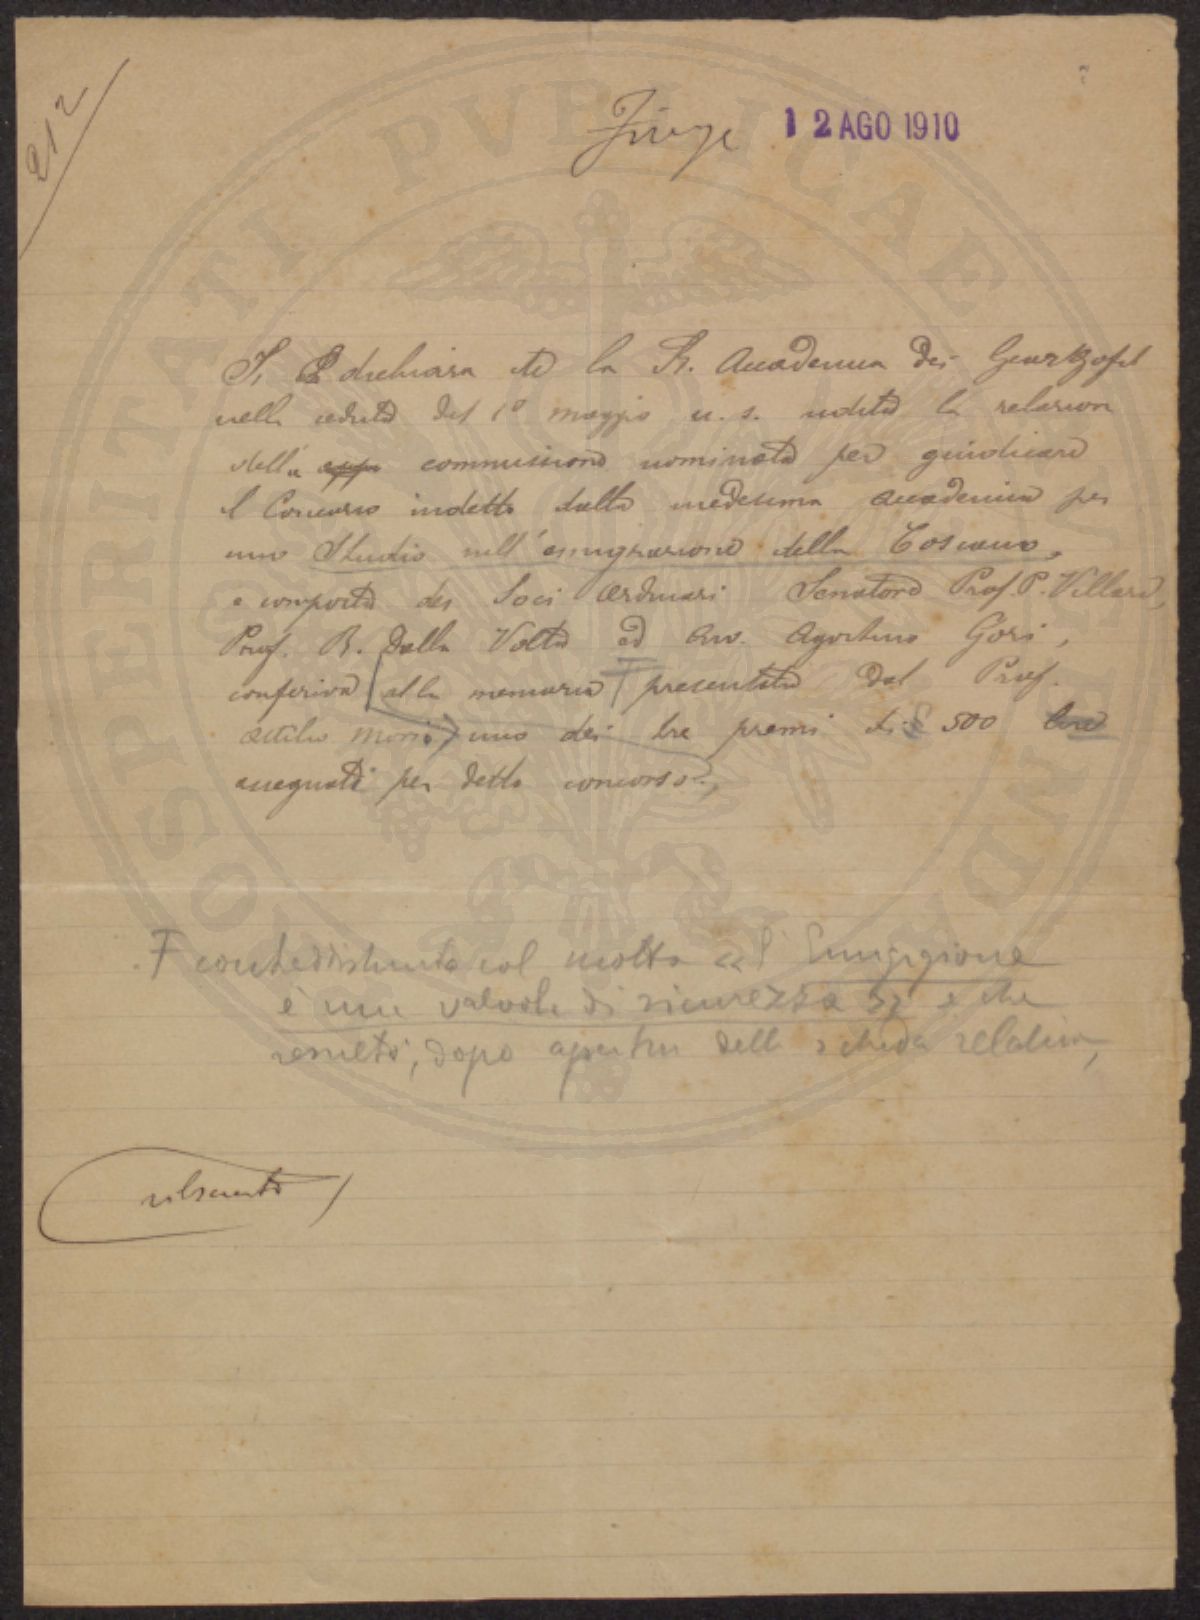 212
Firenze 12 AGO 1910
Si dichiara che la R. Accademia dei Georgofili
nella seduta del 1º maggio u. s. udita la relazione
della commissione nominata per giudicare
il Concorso indetto dalla medesima Accademia per
uno Studio sull'emigrazione della Toscana,
e composta dei Soci Ordinari Senatore Prof. P. Villari,
Prof. R. Dalla Volta ed Avv. Agostino Gori,
conferiva alla memoria presentata dal Prof.
Attilio Mori, uno dei tre premi di £ 500
assegnati per detto concorso.
contraddistinta col motto "L'Emigrazione
è una valvola di sicurezza" e che
resultò, dopo apertura della scheda relativa,
rilasciato
PROSPERITATI PVBLICAE AVGENDAE